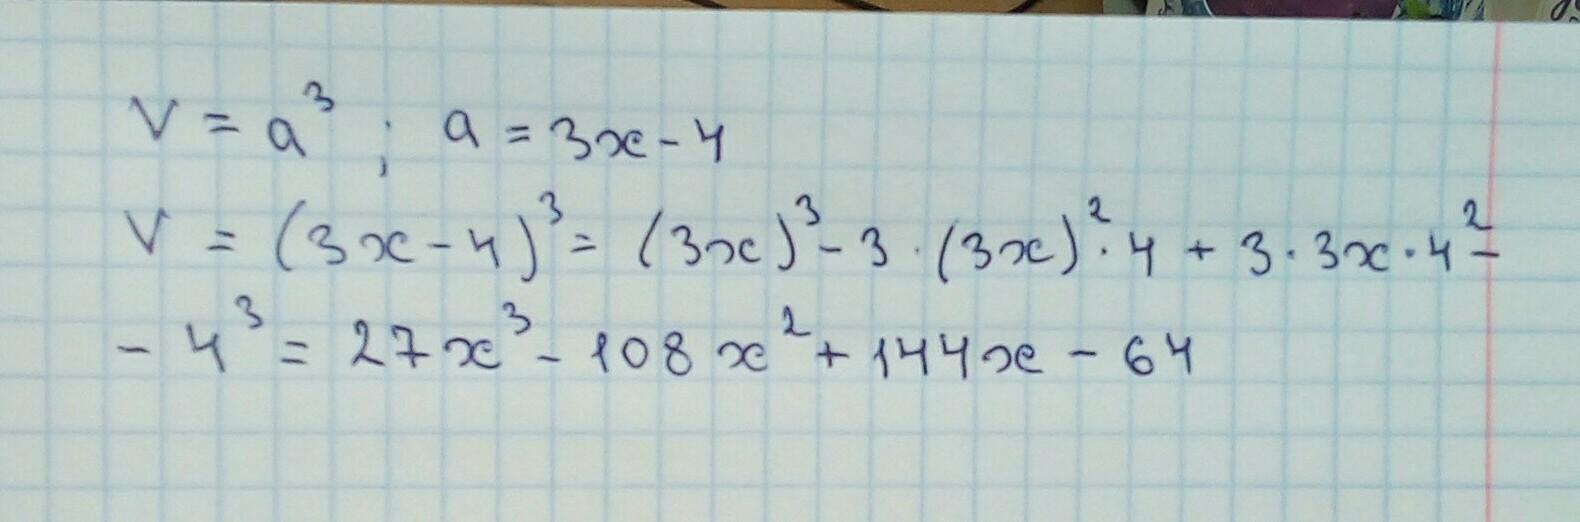 V = a³ ; a = 3x - 4
V = (3x - 4)³ = (3x)³ - 3 · (3x)² · 4 + 3 · 3x · 4² -
- 4³ = 27x³ - 108x² + 144x - 64